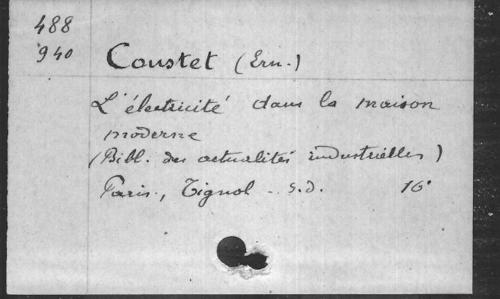 488
940
Coustet (Ern.)
L'électricité dans la maison
moderne
(Bibl. des actualités industrielles)
Paris, Tignol - s.d. 16°